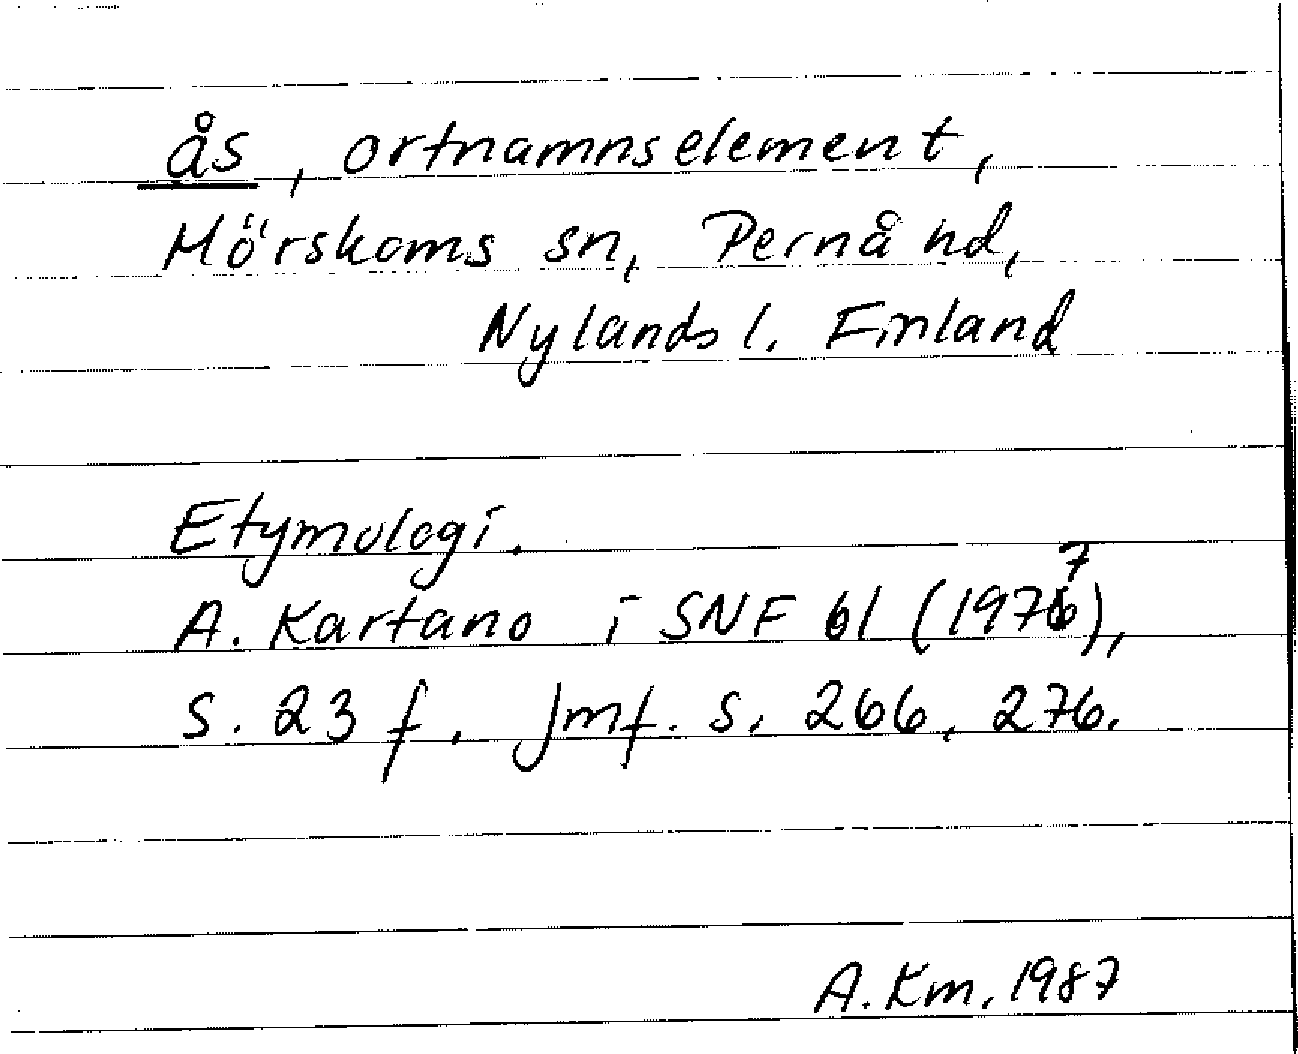 ås, ortnamnselement,
Mörskoms sn, Pernå hd,
Nylands l. Finland
Etymologi.
A. Kartano i SNF 61 (1977),
s. 23 f. Jmf. s. 266, 276.
A. Km. 1987